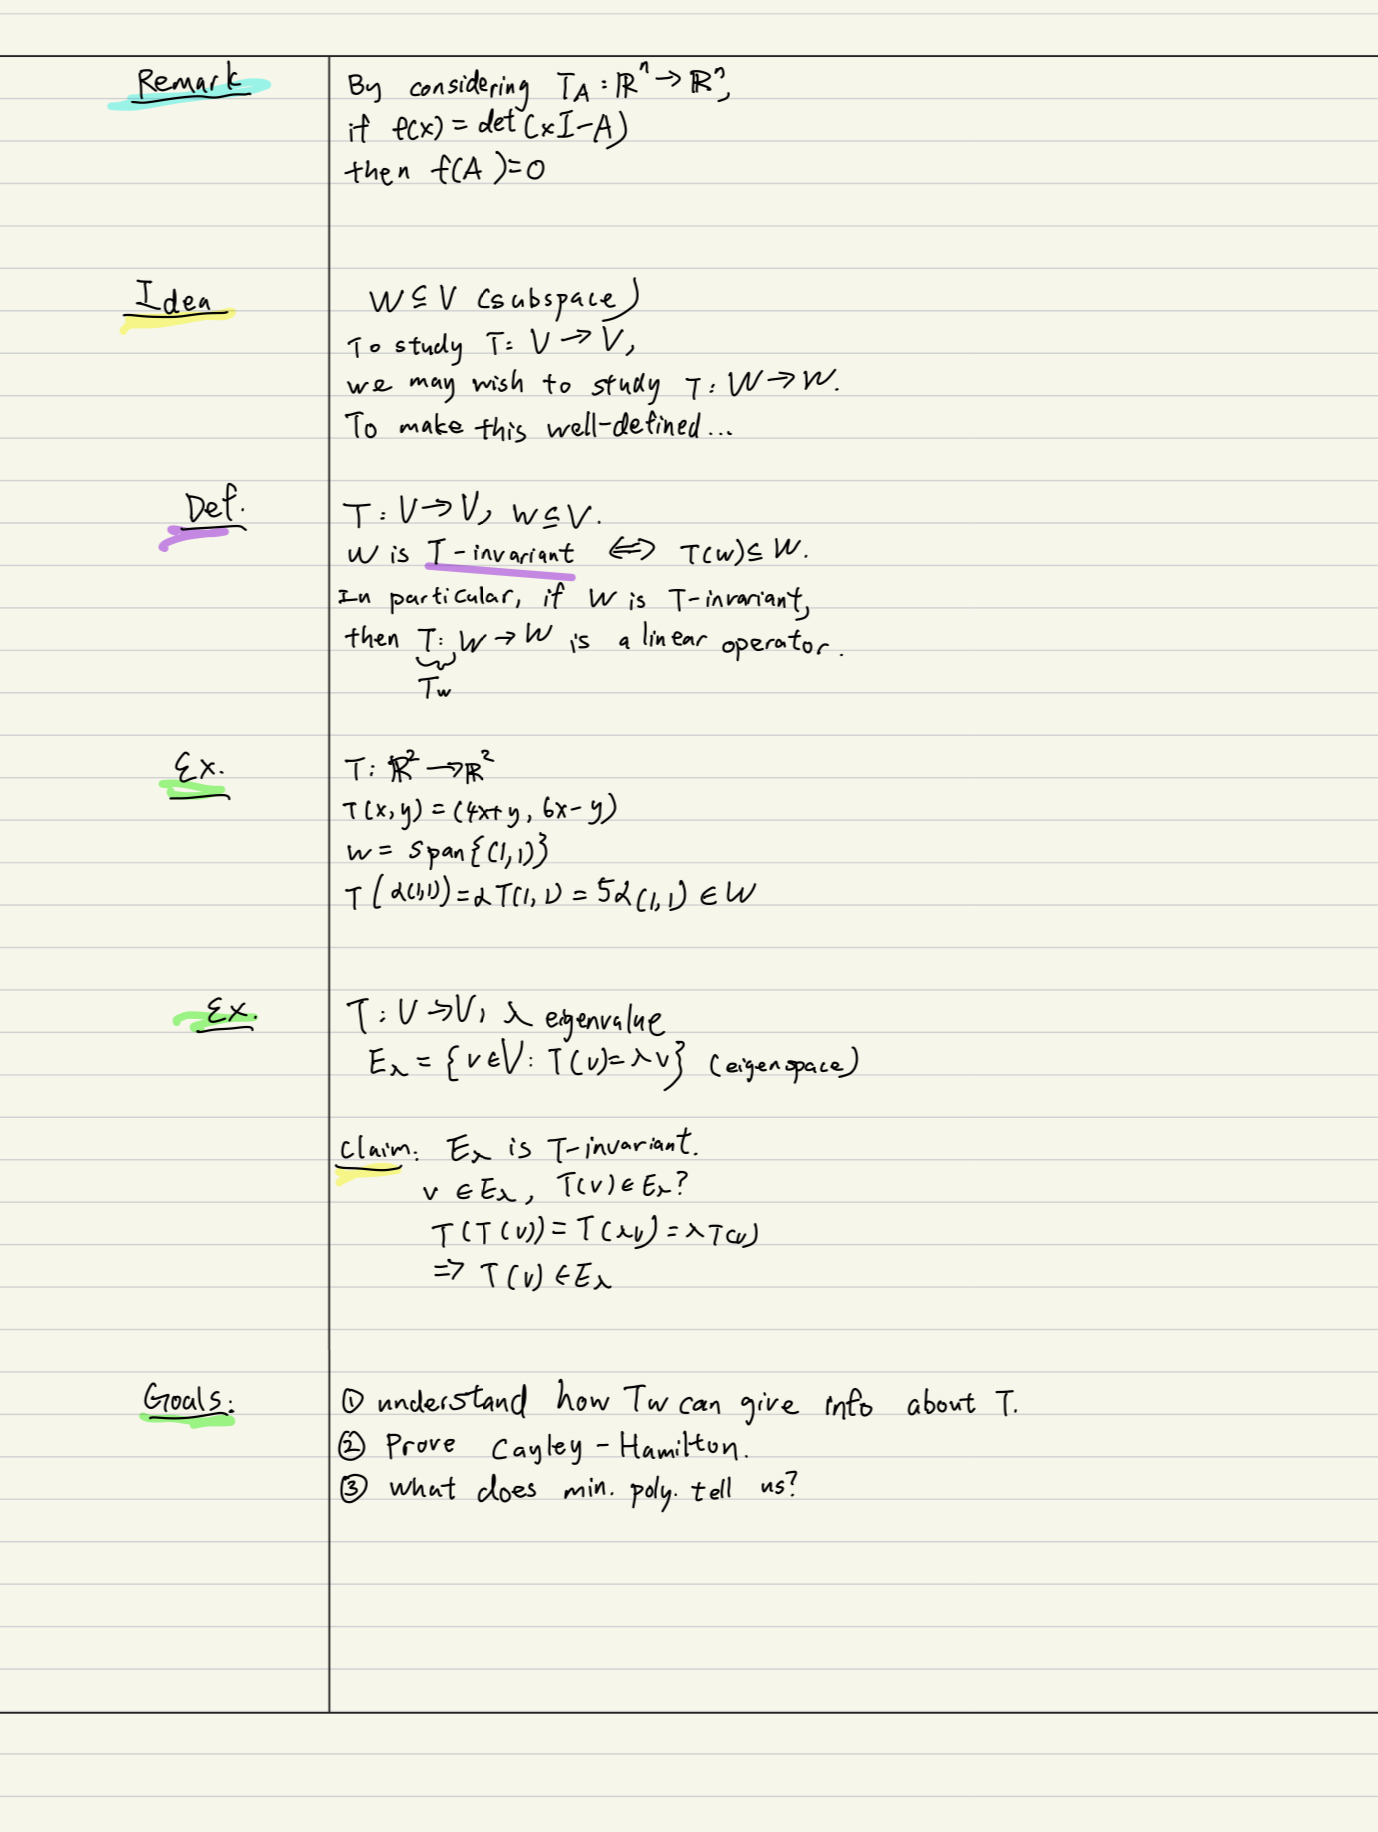 Remark
By considering T_A : ℝⁿ → ℝⁿ,
if f(x) = det(xI-A)
then f(A)=0
Idea
W ⊆ V (subspace)
To study T: V → V,
we may wish to study T: W → W.
To make this well-defined...
Def.
T: V → V, W ⊆ V.
W is T-invariant ⟺ T(W) ⊆ W.
In particular, if W is T-invariant,
then T: W → W is a linear operator.
T_W
Ex.
T: ℝ² → ℝ²
T(x,y) = (4x+y, 6x-y)
W = span{(1,1)}
T(α(1,1)) = αT(1,1) = 5α(1,1) ∈ W
Ex.
T: V → V, λ eigenvalue
E_λ = {v ∈ V: T(v) = λv} (eigenspace)
Claim: E_λ is T-invariant.
v ∈ E_λ, T(v) ∈ E_λ?
T(T(v)) = T(λv) = λT(v)
⇒ T(v) ∈ E_λ
Goals:
① understand how T_W can give info about T.
② Prove Cayley-Hamilton.
③ what does min. poly. tell us?